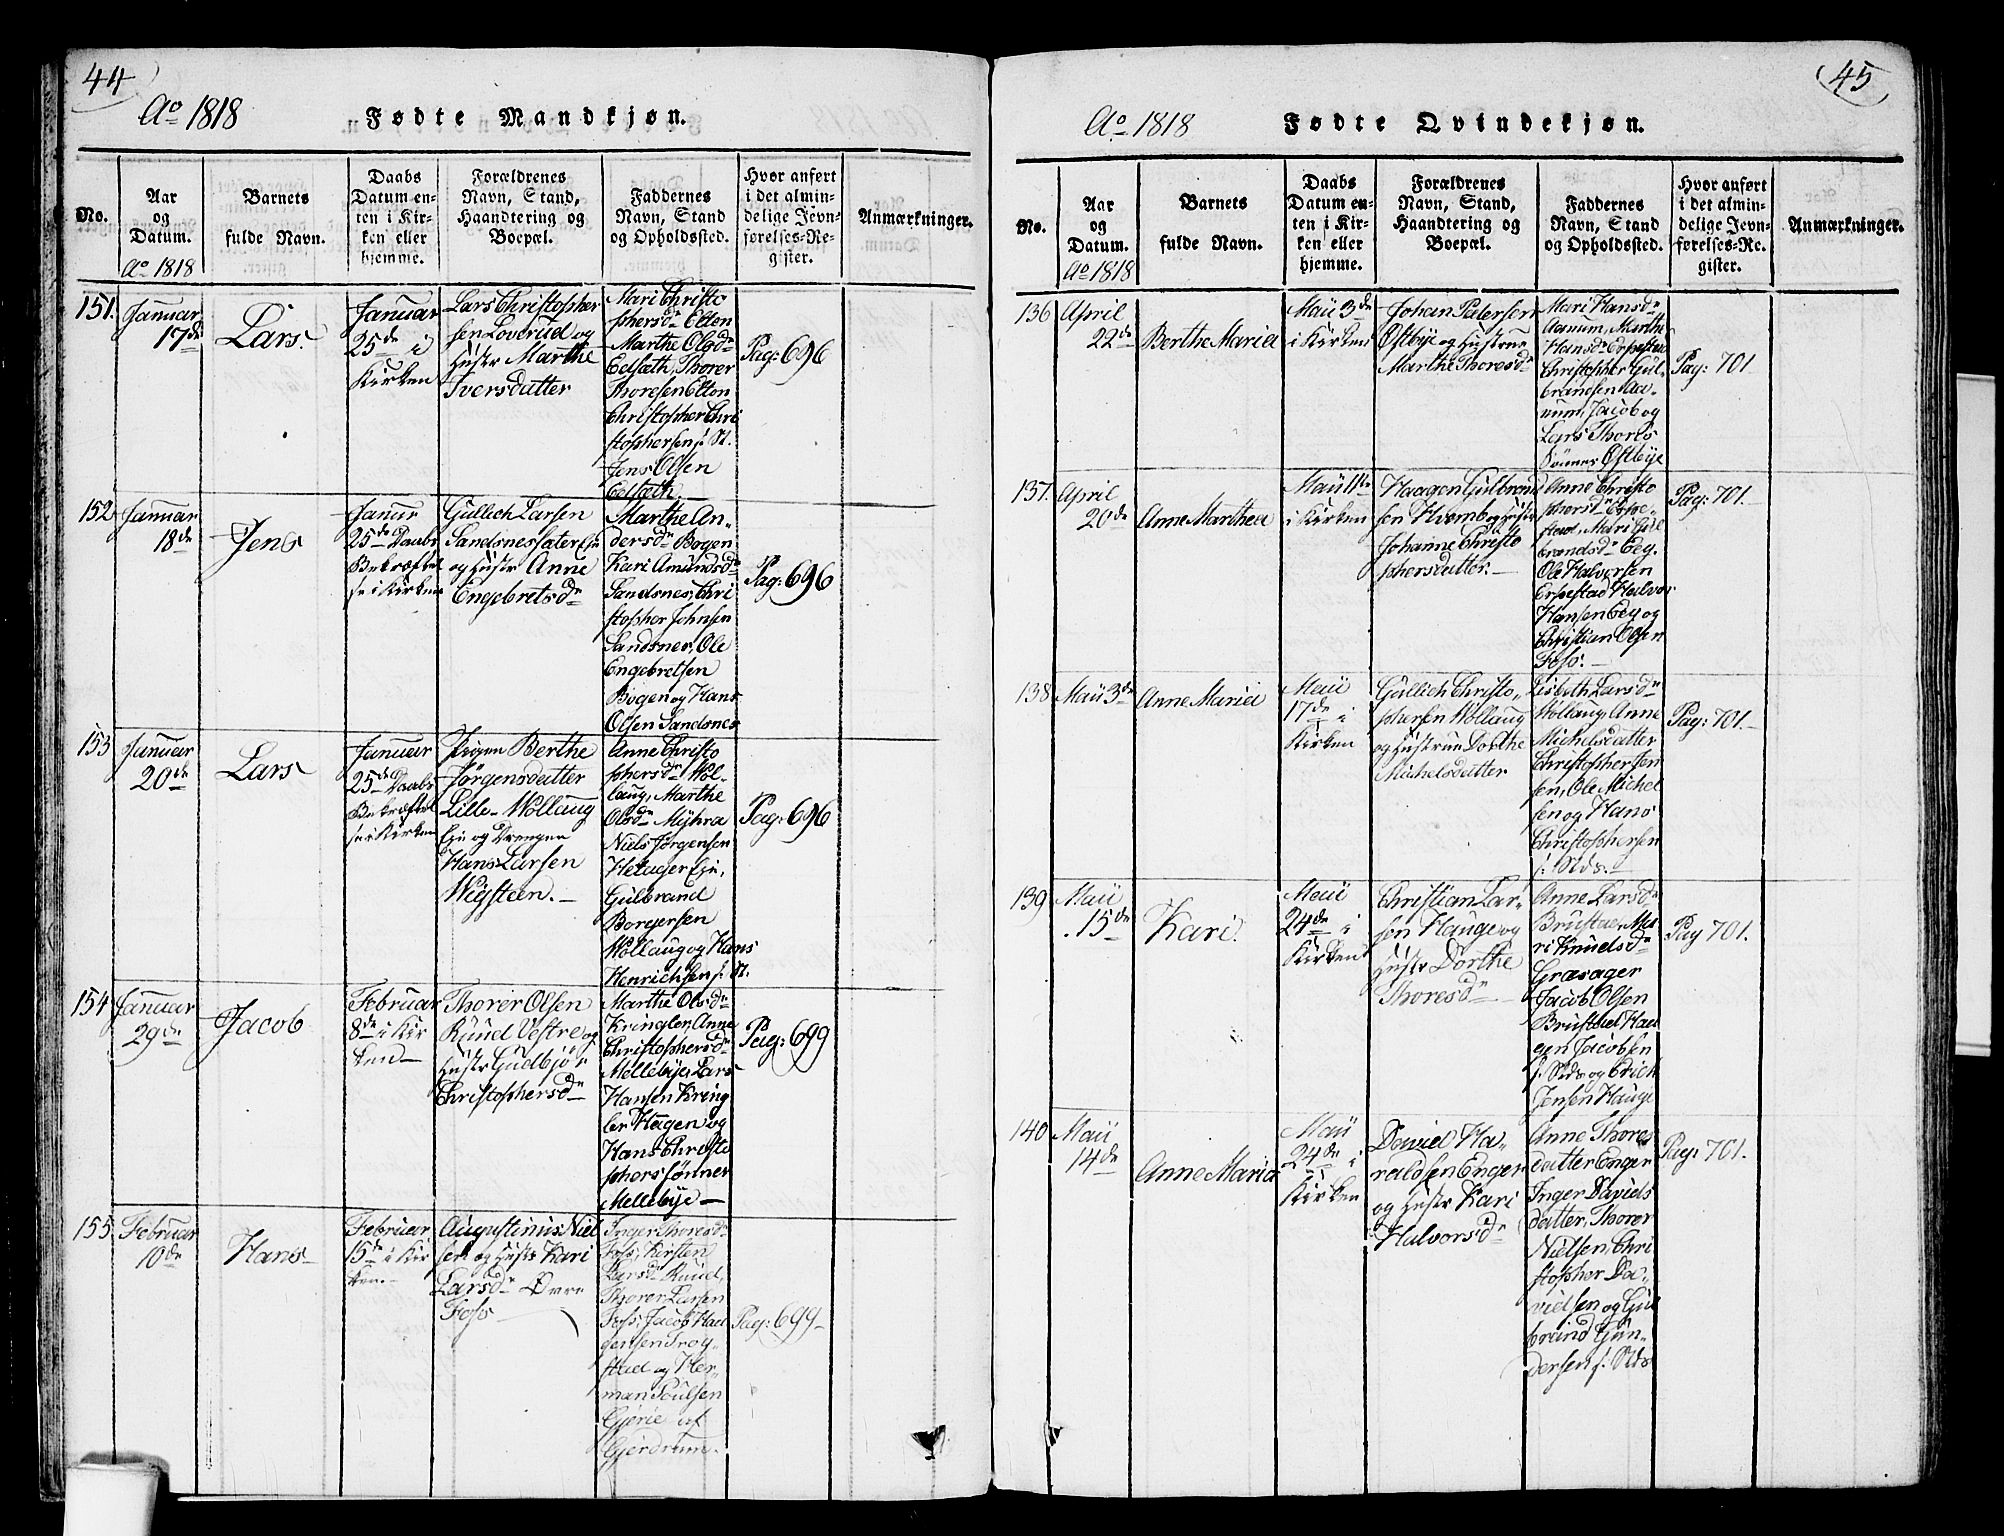 44
Ao 1818
Fødte Mandkjøn.
No.
Aar
og
Datum.
Ao 1818
Barnets
fulde Navn.
Daabs
Datum en-
ten i Kir-
ken eller
hjemme.
Forældrenes
Navn, Stand,
Haandtering og
Boepæl.
Faddernes
Navn, Stand
og Opholdssted.
Hvor anført
i det almin-
delige Jevn-
førelses-Re-
gister.
Anmærkninger.
151.
Januar
17de
Lars.
Januar
25de i
Kirken
Lars Christopher
sen Loverud og
Hustr Marthe
Iversdatter
Mari Christo
phersdr Elton
Marthe Olsdr
Edsæth, Thorer
Thoresen Elton
Christopher Chri
stophersen i: St.
Jens Olsen
Edsæth.
Pag: 696
152
Januar
18de
Jens
Janur
25de Daabs
Bekræftel
se i Kirken
Gullich Larsen
Sandsnessater Eju
og Hustr Anne
Engebretsdr
Marthe An-
dersdr Bogen
Kari Amundsdr
Sandsnes, Chri
stopher Johnsen
Sandsnes, Ole
Engebretsen
Bogen og Hans
Olsen Sandsnes
Pag: 696
153
Januar
20de
Lars
Januar
25de Daabs
Bekræftel
se i Kirken
Pigen Berthe
Jørgensdatter
Lille-Wollaug
Eju og Drengen
Hans Larsen
Wigsteen.
Anne Christo
phersdr Wol-
laug, Marthe
Olsdr Myhra
Niels Jørgensen
Hexager Eju,
Gulbrand
Borgersen
Wollaug og Hans
Henrichsen i: St.
Pag: 696
154
Januar
29de
Jacob
Februar
8de i Kir
ken
Thorer Olsen
Ruud Vestre og
Hustr Gudbjør
Christophersdr
Marthe Olsdr
Kringler, Anne
Christophersdr
Mellebye, Lars
Hansen Kring
ler Hagen og
Hans Christo
phersønner
Mellebye
Pag: 699
155
Februar
10de
Hans
Februar
15de i Kir
ken.
Augustinus Niel
sen og Hustr Kari
Larsdr Øvre
Foss
Inger Thoresdr
Foss, Kirsten
Larsdr Ruud,
Thorer Larsen
Foss, Jacob Haa
gensen Trog-
stad og Her-
man Poulsen
Gjerie af
Gjerdrum.
Pag: 699
45
Ao 1818
Fødte Qvindekjøn.
No.
Aar
og
Datum.
Ao 1818
Barnets
fulde Navn.
Daabs
Datum en-
ten i Kir-
ken eller
hjemme.
Forældrenes
Navn, Stand,
Haandtering og
Boepæl.
Faddernes
Navn, Stand
og Opholdssted.
Hvor anført
i det almin-
delige Jevn-
førelses-Re-
gister.
Anmærkninger.
136
April
22de
Berthe Maria
Maii 3de
i Kirken
Johan Petersen
Østbye og Hustrue
Marthe Thoresdr
Mari Hansdr
Aanum, Marthe
Hansdr Erpestad
Christopher Gul-
brandsen Aa-
num, Jacob og
Lars Thores
Sønner Østbye
Pag: 701
137.
April
20de
Anne Marthea
Maii 11te
i Kirken
Haagen Gulbrand
sen Kværn og Hustr
Johanne Christo
phersdatter.
Anne Christo
phersdr Erpe-
stad, Mari Gul
brandsdr Eeg.
Ole Halversen
Erpestad Halvor
Hansen Eeg og
Christian Olsen
Foss.
Pag: 701.
138
Maii 3de
Anne Maria
Maii
17de i
Kirken
Gullich Christo-
phersen Wollaug
og Hustrue Dorthe
Michelsdatter
Lisbeth Larsdr
Wollaug, Anne
Michelsdatter
Christophersen
sen, Ole Michel
sen og Hans
Christophersen
i: Stds.
Pag: 701.
139
Maii
15de
Kari.
Maii
24de i
Kirken
Christian Lar-
sen Hauge og
Hustr Dorthe
Thoresdr
Anne Larsdr
Brustad, Ma
ri Knudsdr
Græsager
Jacob Olsen
Brustad Haa
gen Jacobsen
i: Stds og Erich
Jensen Hauge
Pag 701.
140
Maii
14de
Anne Maria
Maii
24de i
Kirken
Daniel Ha-
raldsen Enger
og Hustr Kari
Halvorsdr
Anne Thores
datter Enger
Inger Davids
datter, Thorer
Nielsen, Chri
stopher Da-
vidsen og Gul
brand Gun-
dersen i: Stds
Pag: 701.